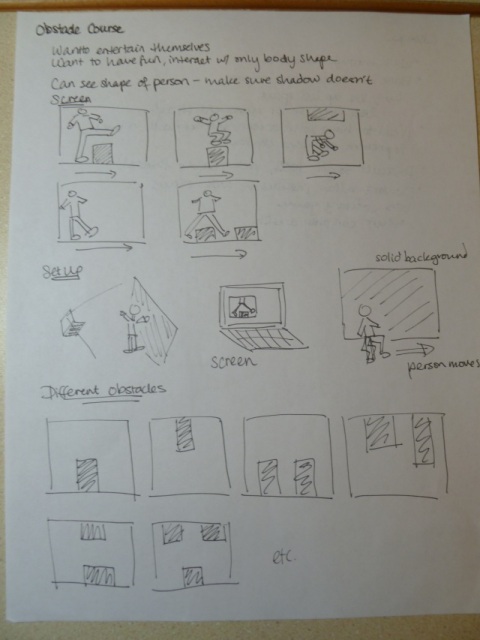 Obstacle Course
Want to entertain themselves
Want to have fun, interact w/ only body shape
Can see shape of person - make sure shadow doesn't
Screen
Set Up
solid background
screen
person moves
Different obstacles
etc.